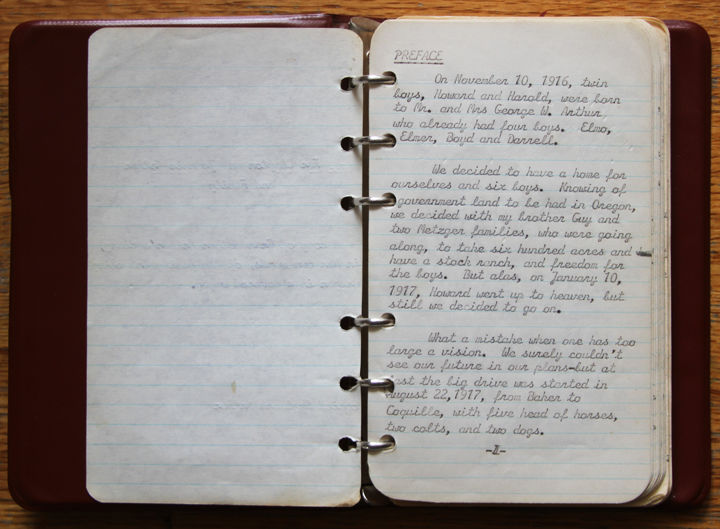 PREFACE
On November 10, 1916, twin
boys, Howard and Harold, were born
to Mr. and Mrs George W. Arthur,
who already had four boys. Elmo,
Elmer, Boyd and Darrell.
We decided to have a home for
ourselves and six boys. Knowing of
government land to be had in Oregon,
we decided with my brother Guy and
two Metzger families, who were going
along, to take six hundred acres and
have a stock ranch, and freedom for
the boys. But alas, on January 10,
1917, Howard went up to heaven, but
still we decided to go on.
What a mistake when one has too
large a vision. We surely couldn't
see our future in our plans-but at
last the big drive was started in
August 22,1917, from Baker to
Coquille, with five head of horses,
two colts, and two dogs.